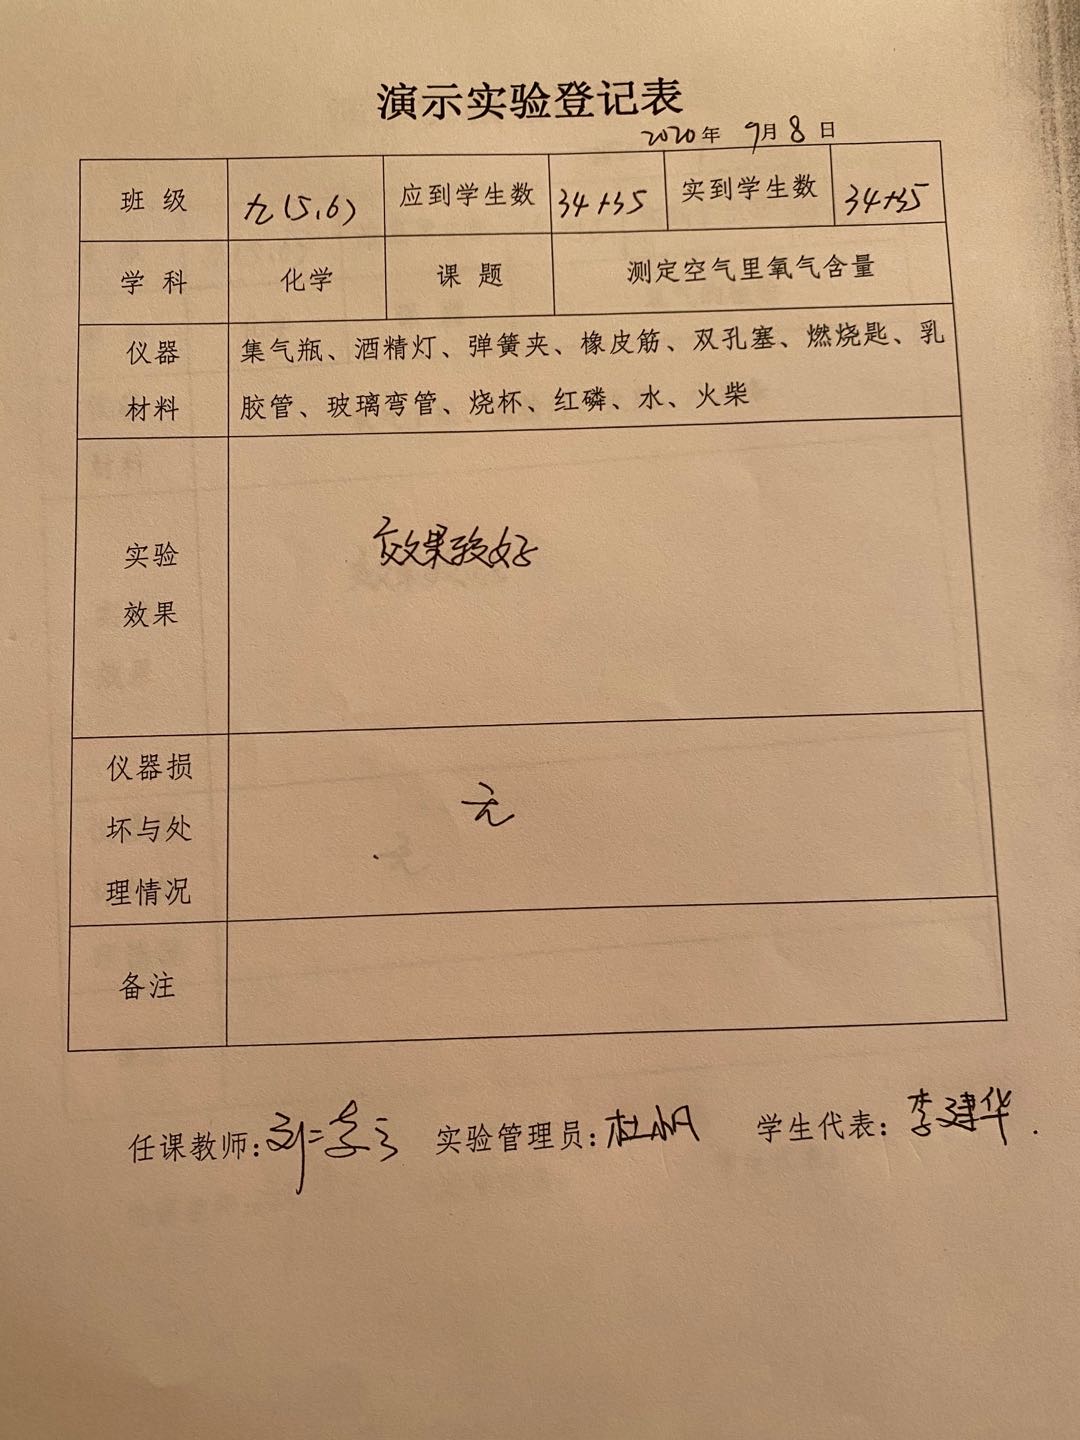 演示实验登记表
2020年 9月8日
班 级 九(5,6) 应到学生数 34+35 实到学生数 34+35
学 科 化学 课 题 测定空气里氧气含量
仪器 集气瓶、酒精灯、弹簧夹、橡皮筋、双孔塞、燃烧匙、乳
材料 胶管、玻璃弯管、烧杯、红磷、水、火柴
实验
效果
效果较好
仪器损
坏与处
理情况
无
备注
任课教师: 实验管理员:杜帆 学生代表:李建华